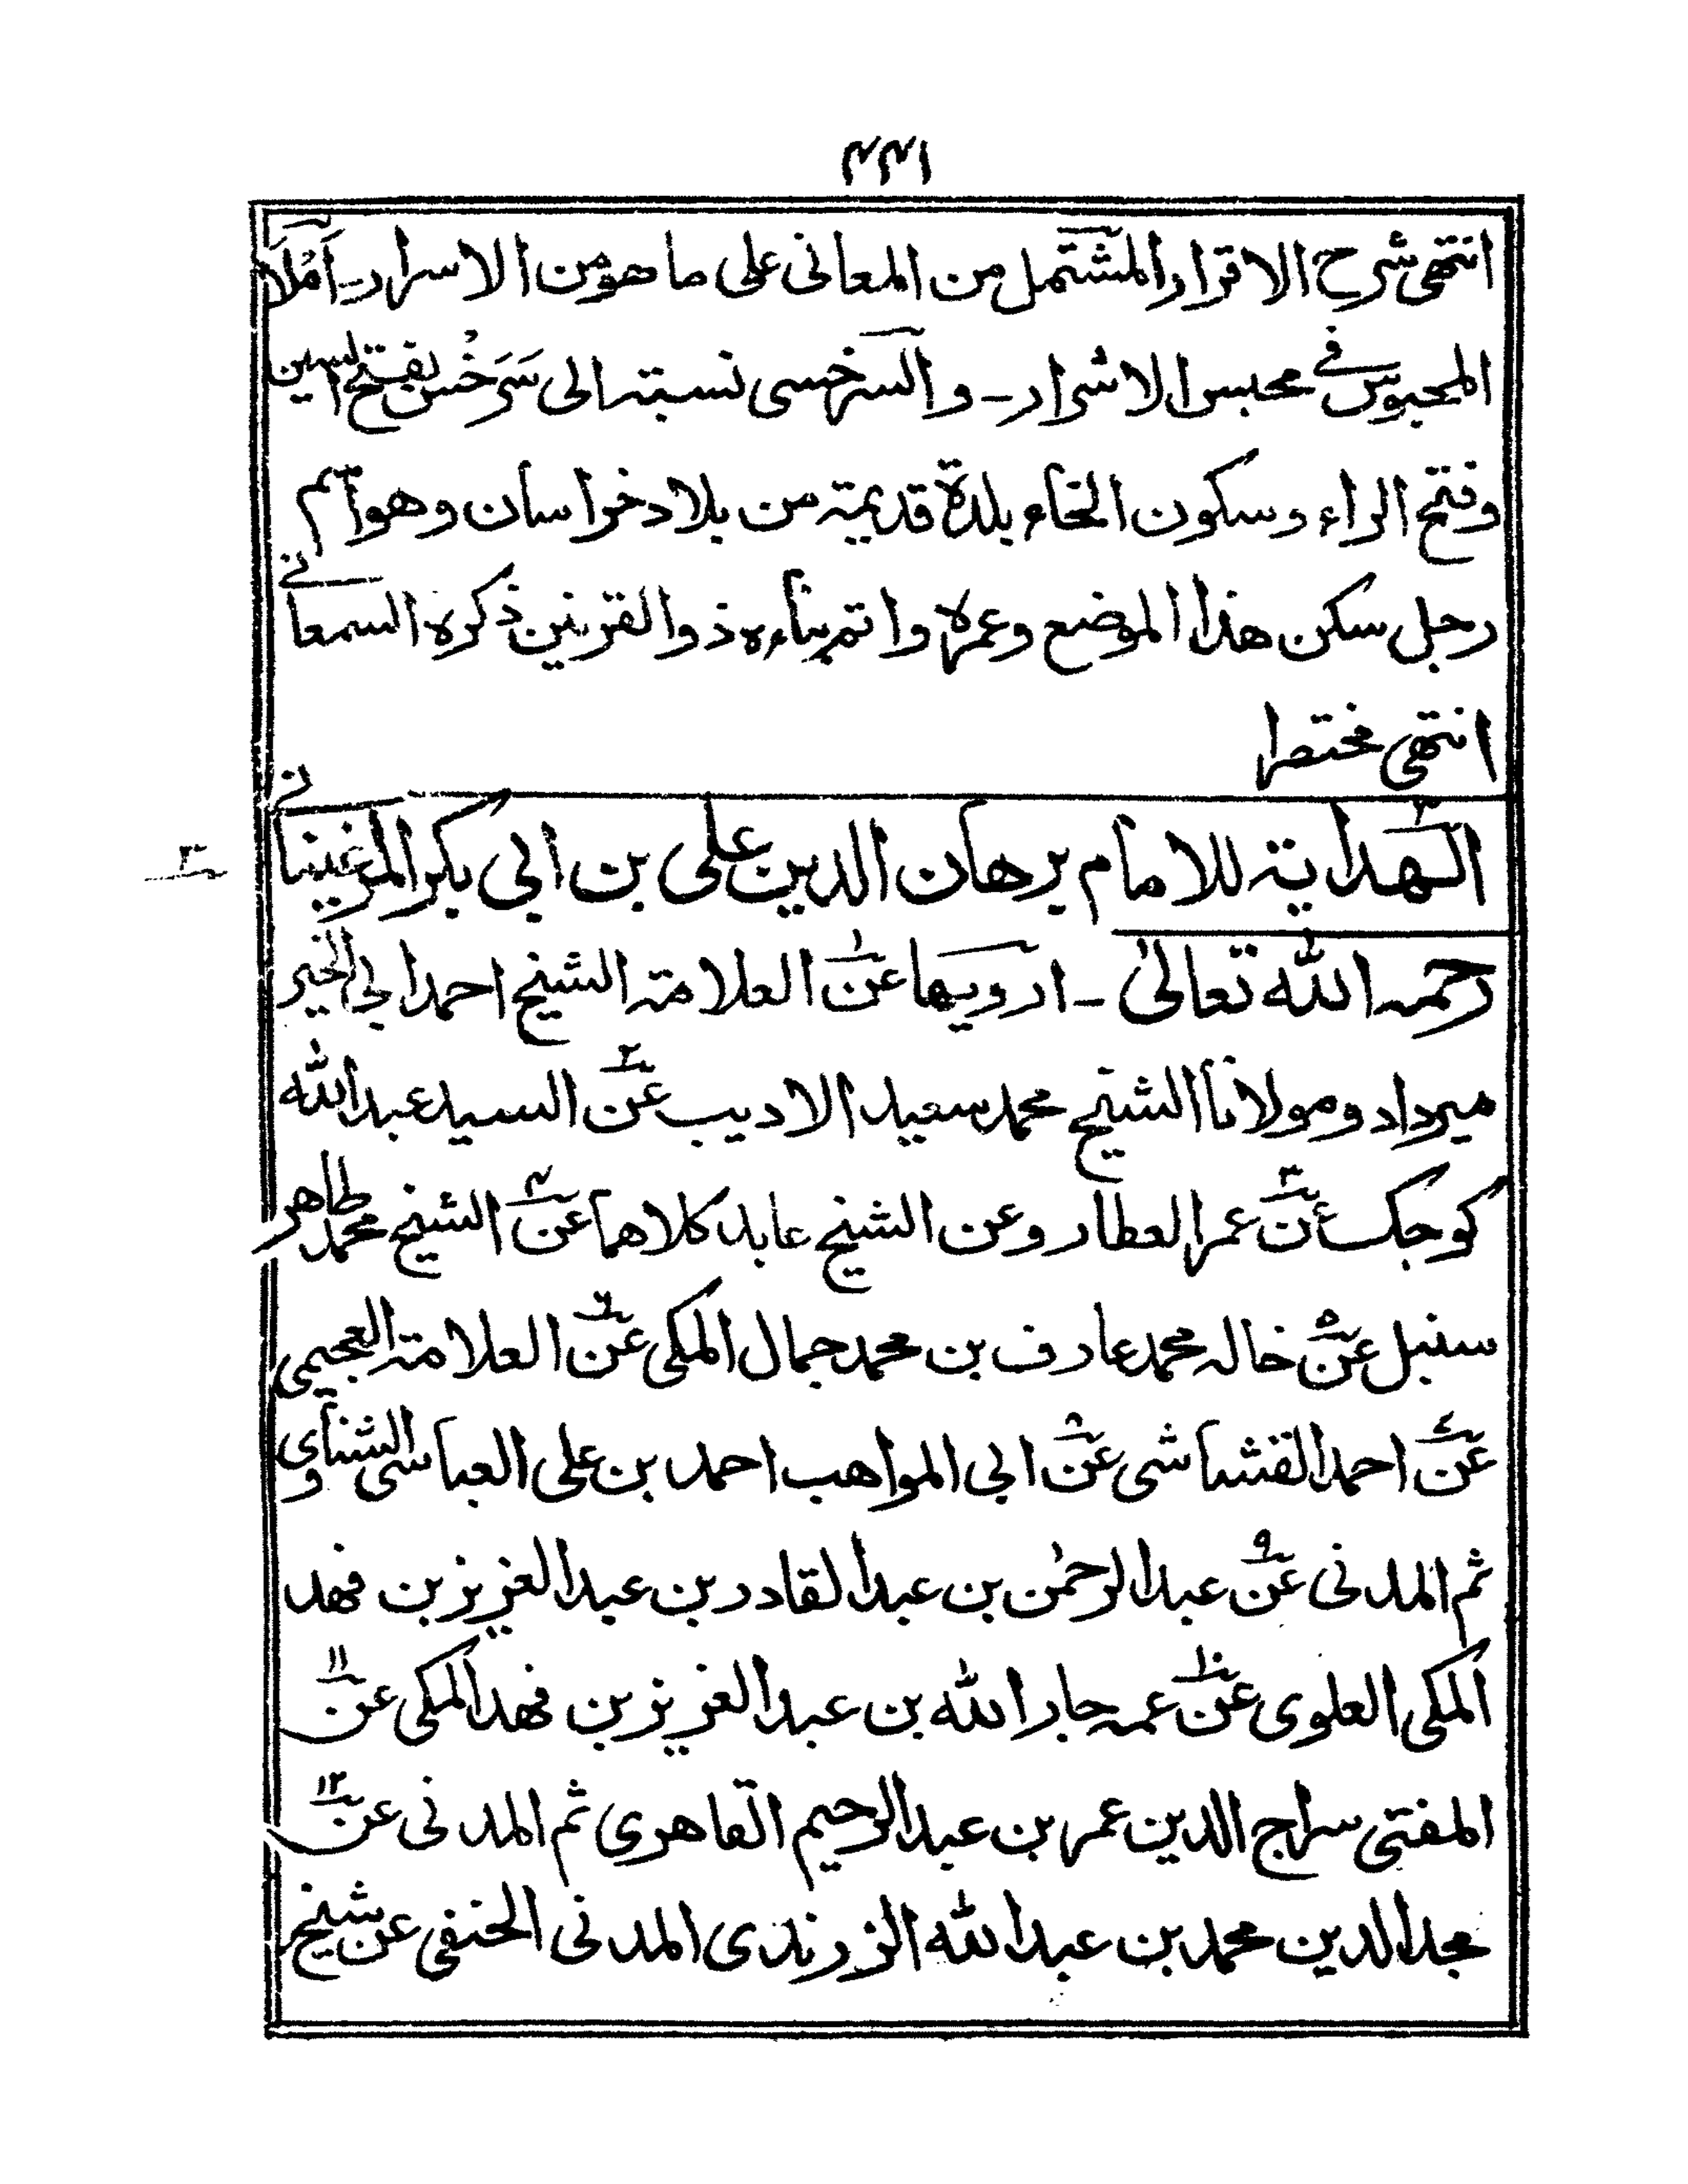 ۴۴۱
انتهى شرح الاقرار المشتمل من المعانى على ما هو من الاسرار۔ اَمْلَاَہٗ
المحبوس فى محبس الاشرار۔ والسرخسى نسبته الى سَرَخْس بفتح السين
وفتح الراء وسكون الخاء بلدة قديمة من بلاد خراسان وهو اسم
رجل سكن هذا الموضع وعمره واتم بناءه ذوالقرنين ذكره السمعانى
انتهى مختصرا
الهداية للامام برهان الدين على بن ابى بكر المرغينانى
رحمه الله تعالىٰ۔ ارويها عن۱ العلامة الشيخ احمد ابى الخير
ميرداد ومولانا الشيخ محمد سعيد الاديب عن۲ السيد عبد الله
كوجك عن۳ عمر العطار وعن الشيخ عابد كلاهما عن۴ الشيخ محمد طاهر
سنبل عن۵ خاله محمد عارف بن محمد جمال المكى عن۶ العلامة العجيمى
عن۷ احمد القشاشى عن۸ ابى المواهب احمد بن على العباسى الشناوى
ثم المدنى عن۹ عبد الرحمٰن بن عبد القادر بن عبد العزيز بن فهد
المكى العلوى عن۱۰ عمه جار الله بن عبد العزيز بن فهد المكى عن۱۱
المفتى سراج الدين عمر بن عبد الرحيم القاهرى ثم المدنى عن۱۲
مجد الدين محمد بن عبد الله الزرندى المدنى الحنفى عن شيخ
۳